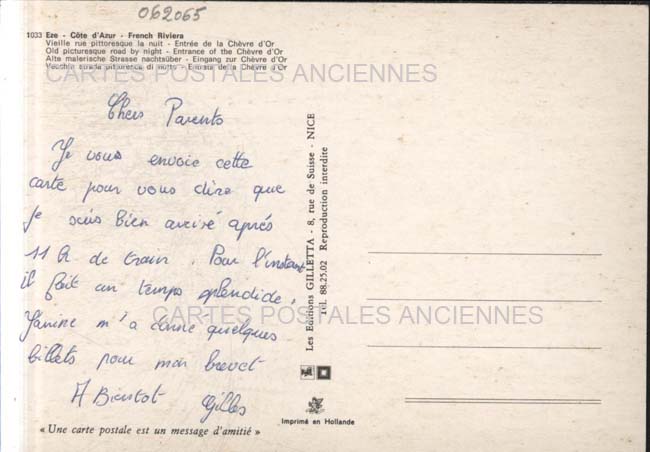 062065
1033 Eze - Côte d'Azur - French Riviera
Vieille rue pittoresque la nuit - Entrée de la Chèvre d'Or
Old picturesque road by night - Entrance of the Chèvre d'Or
Alte malerische Strasse nachtsüber - Eingang zur Chèvre d'Or
Vecchia strada pittoresca di notte - Entrata della Chèvre d'Or
CARTES POSTALES ANCIENNES
Chers Parents
Je vous envoie cette
carte pour vous dire que
je suis bien arrivé après
11 h. de train. Pour l'instant
il fait un temps splendide,
Janine m'a donné quelques
billets pour mon brevet
A Bientot Gilles
« Une carte postale est un message d'amitié »
Les Editions GILLETTA - 8, rue de Suisse - NICE
Tél. 88.25.02 Reproduction interdite
CARTES POSTALES ANCIENNES
Imprimé en Hollande